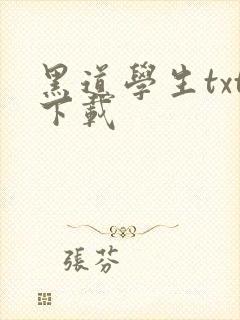 黑道學生txt
下載
張芬